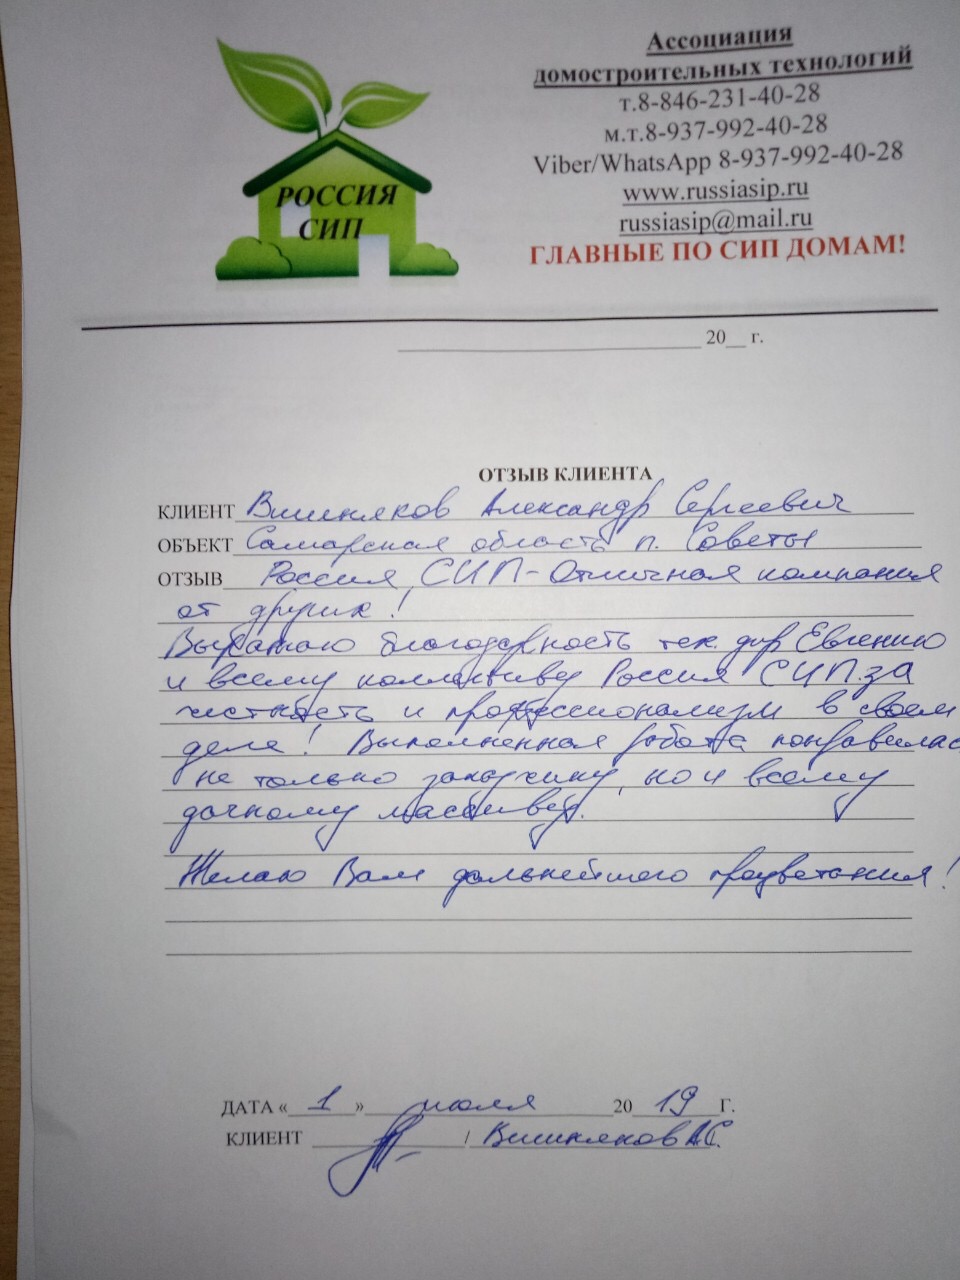 Ассоциация
домостроительных технологий
т.8-846-231-40-28
м.т.8-937-992-40-28
Viber/WhatsApp 8-937-992-40-28
www.russiasip.ru
russiasip@mail.ru
ГЛАВНЫЕ ПО СИП ДОМАМ!
РОССИЯ
СИП
20__ г.
ОТЗЫВ КЛИЕНТА
КЛИЕНТ Вишняков Александр Сергеевич
ОБЪЕКТ Самарская область п. Советы
ОТЗЫВ Россия СИП - Отличная компания
от других!
Выражаю благодарность тех. дир Евгению
и всему коллективу Россия СИП за
честность и профессионализм в своем
деле! Выполненная работа понравилас
не только заказчику, но и всему
дачному массиву.
Желаю Вам дальнейшего процветания!
ДАТА « 1 » июля 20 19 г.
КЛИЕНТ / Вишняков А.С.